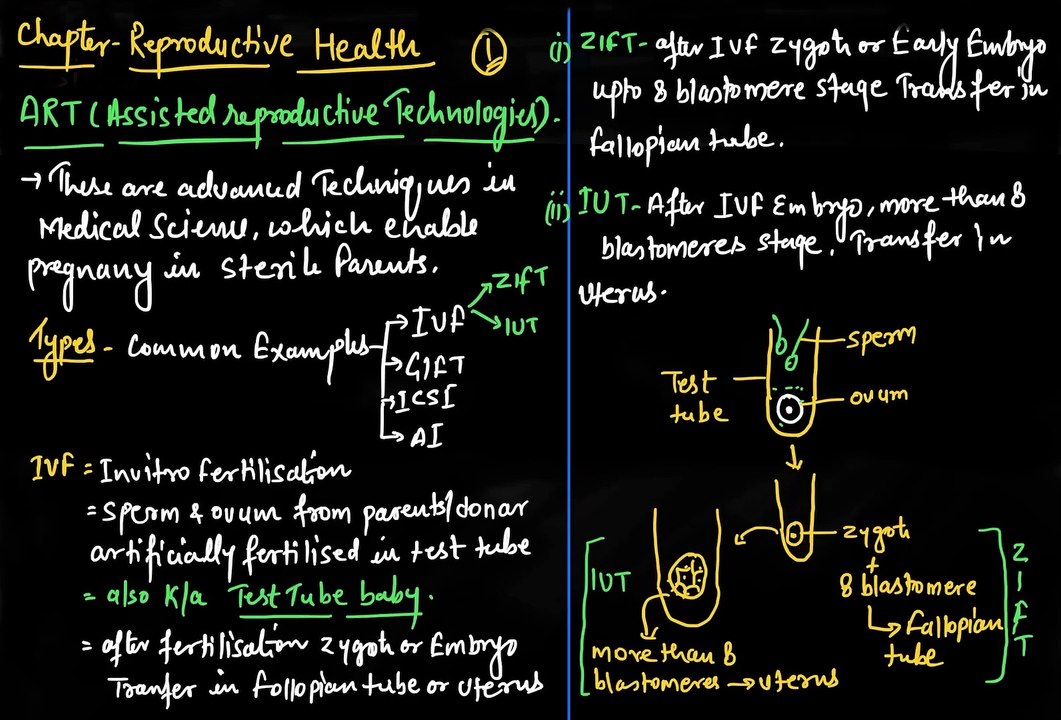 Chapter-Reproductive Health ①
ART (Assisted reproductive Technologies).
→ These are advanced Techniques in
Medical Science, which enable
pregnany in sterile Parents.
Types - Common Examples
→ IVF
→ ZIFT
→ IUT
→ GIFT
→ ICSI
→ AI
IVF = Invitro fertilisation
= sperm & ovum from parents/donar
artificially fertilised in test tube
= also K/a Test Tube baby.
= after fertilisation zygote or Embryo
Tranfer in follopian tube or uterus
(i) ZIFT - after IVF zygote or Early Embryo
upto 8 blastomere stage Transfer in
fallopian tube.
(ii) IUT - After IVF Embryo, more than 8
blastomeres stage. Transfer In
uterus.
sperm
Test
tube
ovum
zygote
+
8 blastomere
↳ fallopian
tube
ZIFT
IUT
more than 8
blastomeres → uterus